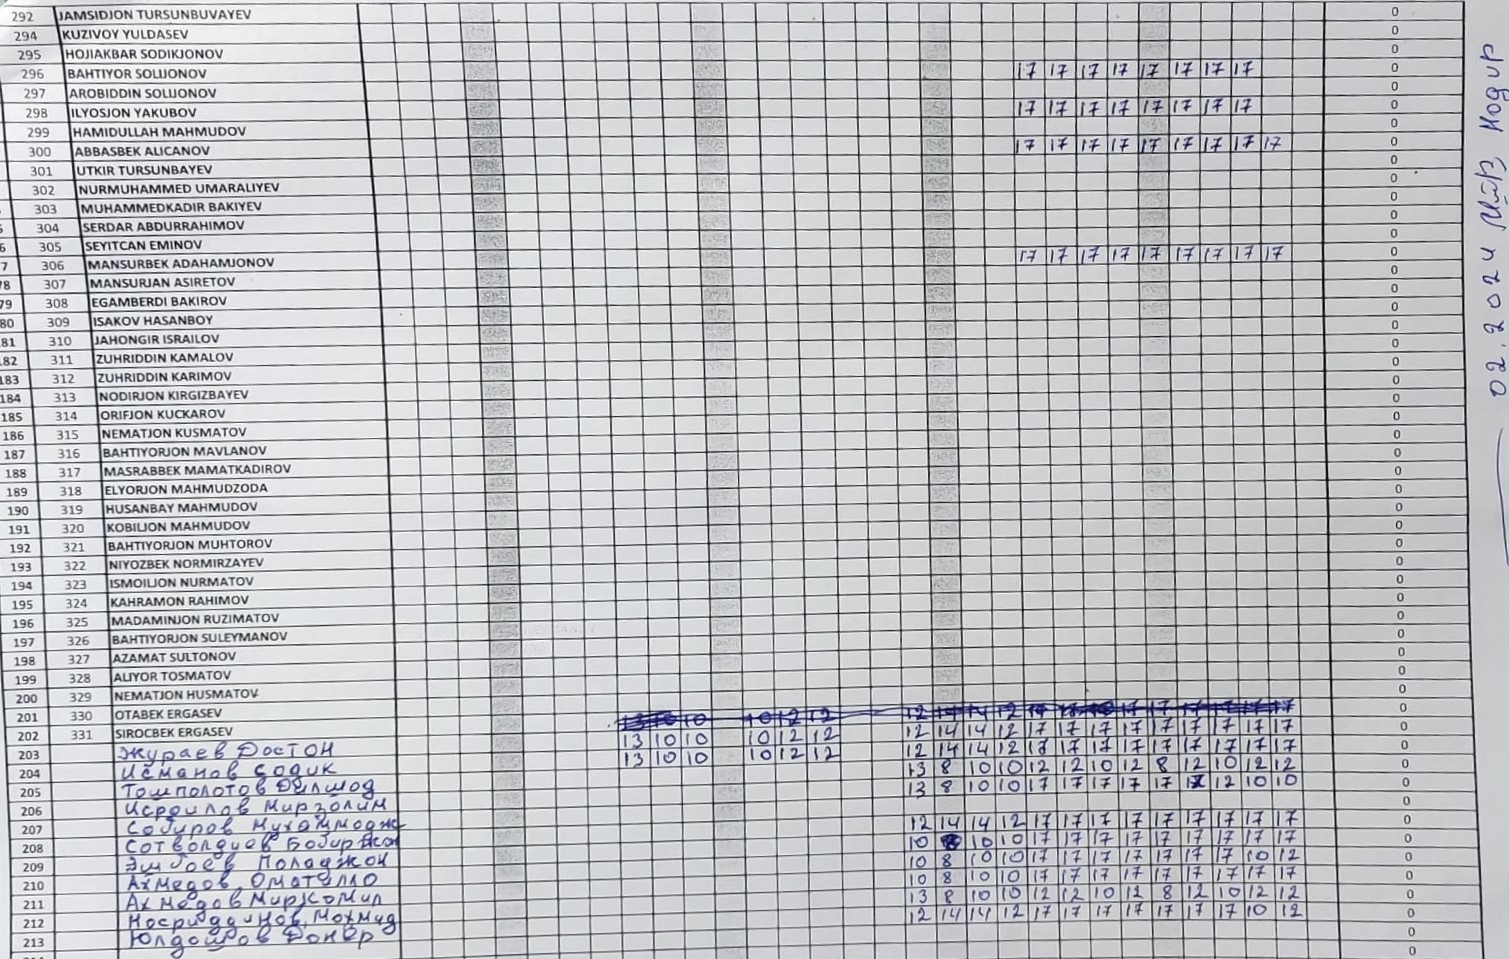 292 JAMSIDJON TURSUNBUVAYEV 0
294 KUZIVOY YULDASEV 0
295 HOJIAKBAR SODIKJONOV 0
296 BAHTIYOR SOLIJONOV 17 17 17 17 17 17 17 17 0
297 AROBIDDIN SOLIJONOV 0
298 ILYOSJON YAKUBOV 17 17 17 17 17 17 17 17 0
299 HAMIDULLAH MAHMUDOV 0
300 ABBASBEK ALICANOV 17 17 17 17 17 17 17 17 17 0
301 UTKIR TURSUNBAYEV 0
302 NURMUHAMMED UMARALIYEV 0
303 MUHAMMEDKADIR BAKIYEV 0
304 SERDAR ABDURRAHIMOV 0
305 SEYITCAN EMINOV 0
306 MANSURBEK ADAHAMJONOV 17 17 17 17 17 17 17 17 17 0
78 307 MANSURJAN ASIRETOV 0
79 308 EGAMBERDI BAKIROV 0
80 309 ISAKOV HASANBOY 0
181 310 JAHONGIR ISRAILOV 0
182 311 ZUHRIDDIN KAMALOV 0
183 312 ZUHRIDDIN KARIMOV 0
184 313 NODIRJON KIRGIZBAYEV 0
185 314 ORIFJON KUCKAROV 0
186 315 NEMATJON KUSMATOV 0
187 316 BAHTIYORJON MAVLANOV 0
188 317 MASRABBEK MAMATKADIROV 0
189 318 ELYORJON MAHMUDZODA 0
190 319 HUSANBAY MAHMUDOV 0
191 320 KOBILJON MAHMUDOV 0
192 321 BAHTIYORJON MUHTOROV 0
193 322 NIYOZBEK NORMIRZAYEV 0
194 323 ISMOILJON NURMATOV 0
195 324 KAHRAMON RAHIMOV 0
196 325 MADAMINJON RUZIMATOV 0
197 326 BAHTIYORJON SULEYMANOV 0
198 327 AZAMAT SULTONOV 0
199 328 ALIYOR TOSMATOV 0
200 329 NEMATJON HUSMATOV 0
201 330 OTABEK ERGASEV 0
202 331 SIROCBEK ERGASEV 13 10 10 10 12 12 12 14 14 12 17 17 17 17 17 17 17 17 17 0
203 Жураев Достон 13 10 10 10 12 12 12 14 14 12 17 17 17 17 17 17 17 17 17 0
204 Исманов Содик 13 8 10 10 12 12 10 12 8 12 10 12 12 0
205 Тошполотов Дилшод 13 8 10 10 17 17 17 17 17 12 10 10 0
206 Исроилов Мирзолим 0
207 Собиров Мухаммоджо 12 14 14 12 17 17 17 17 17 17 17 17 17 0
208 Сотволдиев Бобиржон 10 10 10 17 17 17 17 17 17 17 17 17 0
209 Эшбоев Поладжон 10 8 10 10 17 17 17 17 17 17 17 10 12 0
210 Ахмедов Оматилло 10 8 10 10 17 17 17 17 17 17 17 17 17 0
211 Ахмедов Миркомил 13 8 10 10 12 12 10 12 8 12 10 12 12 0
212 Носриддинов Мохмуд 12 14 14 12 17 17 17 17 17 17 17 10 12 0
213 Юлдошов Донер 0
0
02.2024 Нодир